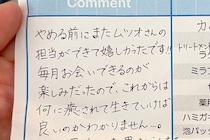 Comment
やめる前にまたムツオさんの
担当ができて嬉しかったです!!
毎月お会いできるのが
楽しみだったので、これからは
何に癒されて生きていけば
良いのかわかりません…。
カ
トリートメン
ミラ
ファ
ハー
泡パッ